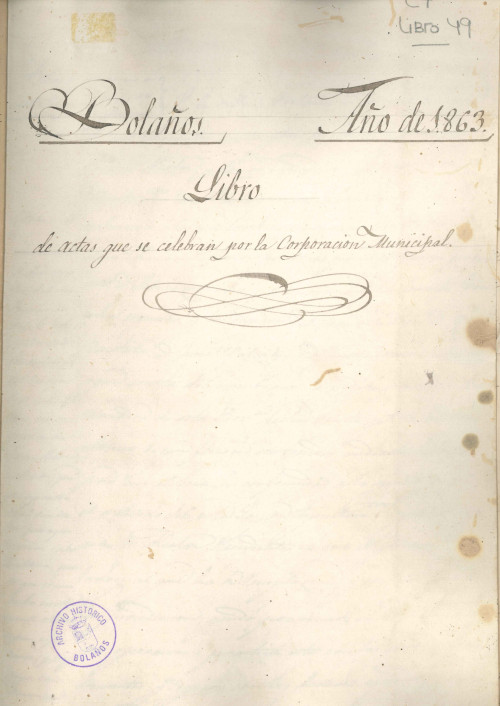 LIBRO 49
Bolaños. Año de 1863.
Libro
de actas que se celebran por la Corporacion Municipal.
ARCHIVO HISTÓRICO
BOLAÑOS